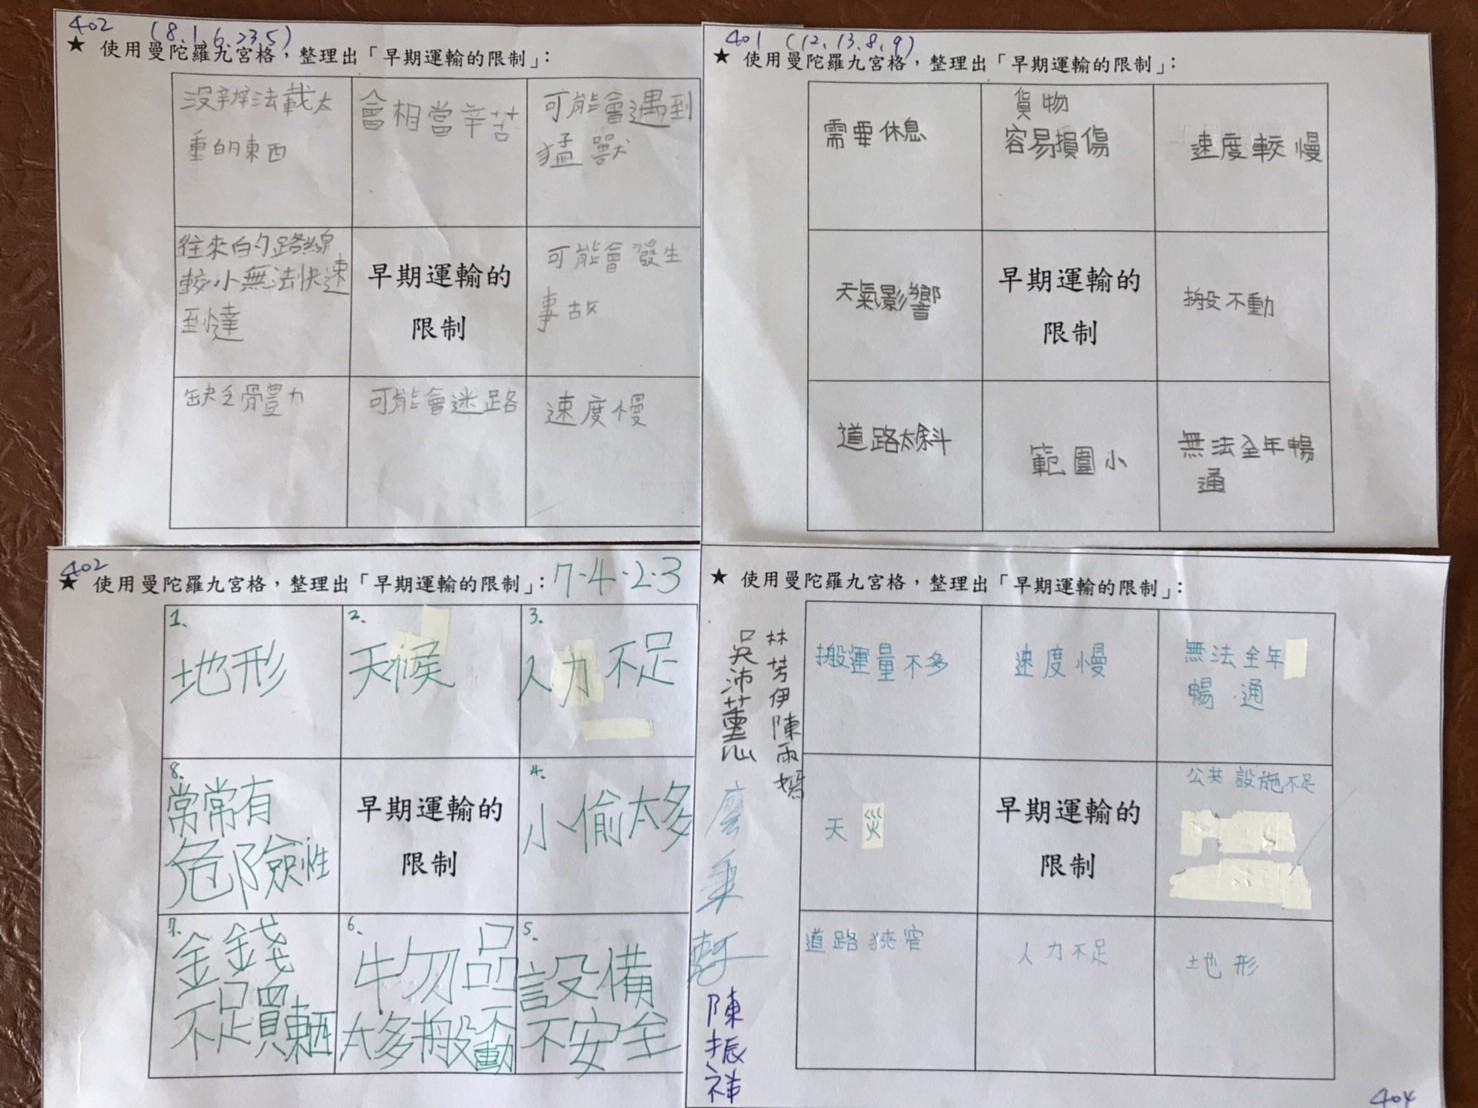 402 (8.1.6.23.5)
★ 使用曼陀羅九宮格，整理出「早期運輸的限制」：
沒辦法載太
重的東西
會相當辛苦
可能會遇到
猛獸
往來的路線
較小無法快速
到達
早期運輸的
限制
可能會發生
事故
缺乏體力
可能會迷路
速度慢
401 (12.13.8.9)
★ 使用曼陀羅九宮格，整理出「早期運輸的限制」：
需要休息
貨物
容易損傷
速度較慢
天氣影響
早期運輸的
限制
搬不動
道路太斜
範圍小
無法全年暢
通
402
★ 使用曼陀羅九宮格，整理出「早期運輸的限制」：7.4.2.3
1.
地形
2.
天候
3.
人力不足
8.
常常有
危險性
早期運輸的
限制
4.
小偷太多
7.
金錢
不足買東西
6.
物品
太多搬不動
5.
設備
不安全
★ 使用曼陀羅九宮格，整理出「早期運輸的限制」：
林芳伊陳雨嫣
吳沛
陳振禕
搬運量不多
速度慢
無法全年
暢通
天災
早期運輸的
限制
公共設施不足
道路狹窄
人力不足
地形
404